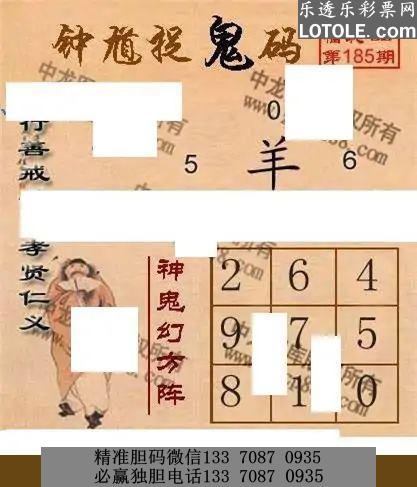 乐透乐彩票网
LOTOLE.COM
钟馗捉鬼码
第185期
行善戒
孝贤仁义
0
5
羊
6
神鬼幻方阵
2 6 4
9 7 5
8 1 0
精准胆码微信133 7087 0935
必赢独胆电话133 7087 0935